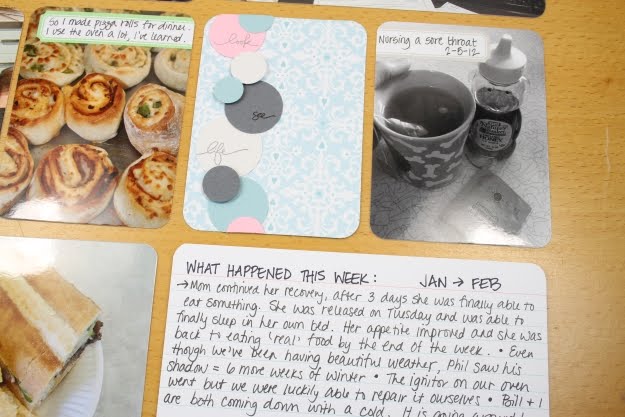 So I made pizza rolls for dinner.
I use the oven a lot, I've learned.
look
so
life
Nursing a sore throat
2-5-12
WHAT HAPPENED THIS WEEK: JAN → FEB
→ Mom continued her recovery, after 3 days she was finally able to
eat something. She was released on Tuesday and was able to
finally sleep in her own bed. Her appetite improved and she was
back to eating 'real' food by the end of the week. • Even
though we've been having beautiful weather, Phil saw his
shadow = 6 more weeks of winter • The ignitor on our oven
went but we were luckily able to repair it ourselves • Bill + I
are both coming down with a cold. It is going around